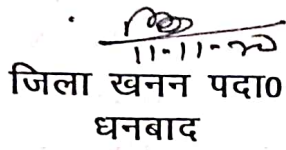 11-11-20
जिला खनन पदा0
धनबाद